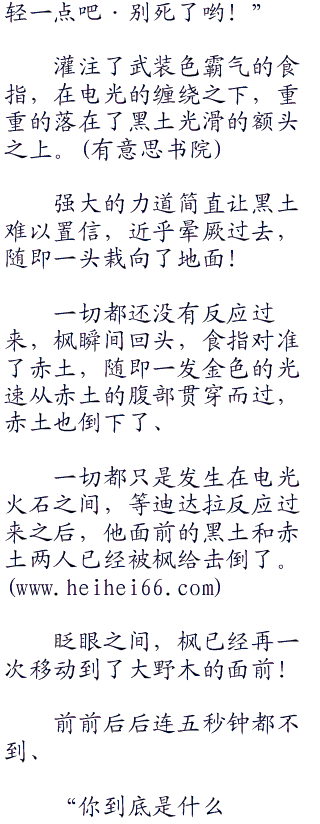 轻一点吧·别死了哟！”
灌注了武装色霸气的食
指，在电光的缠绕之下，重
重的落在了黑土光滑的额头
之上。(有意思书院)
强大的力道简直让黑土
难以置信，近乎晕厥过去，
随即一头栽向了地面！
一切都还没有反应过
来，枫瞬间回头，食指对准
了赤土，随即一发金色的光
速从赤土的腹部贯穿而过，
赤土也倒下了、
一切都只是发生在电光
火石之间，等迪达拉反应过
来之后，他面前的黑土和赤
土两人已经被枫给击倒了。
(www.heihei66.com)
眨眼之间，枫已经再一
次移动到了大野木的面前！
前前后后连五秒钟都不
到、
“你到底是什么